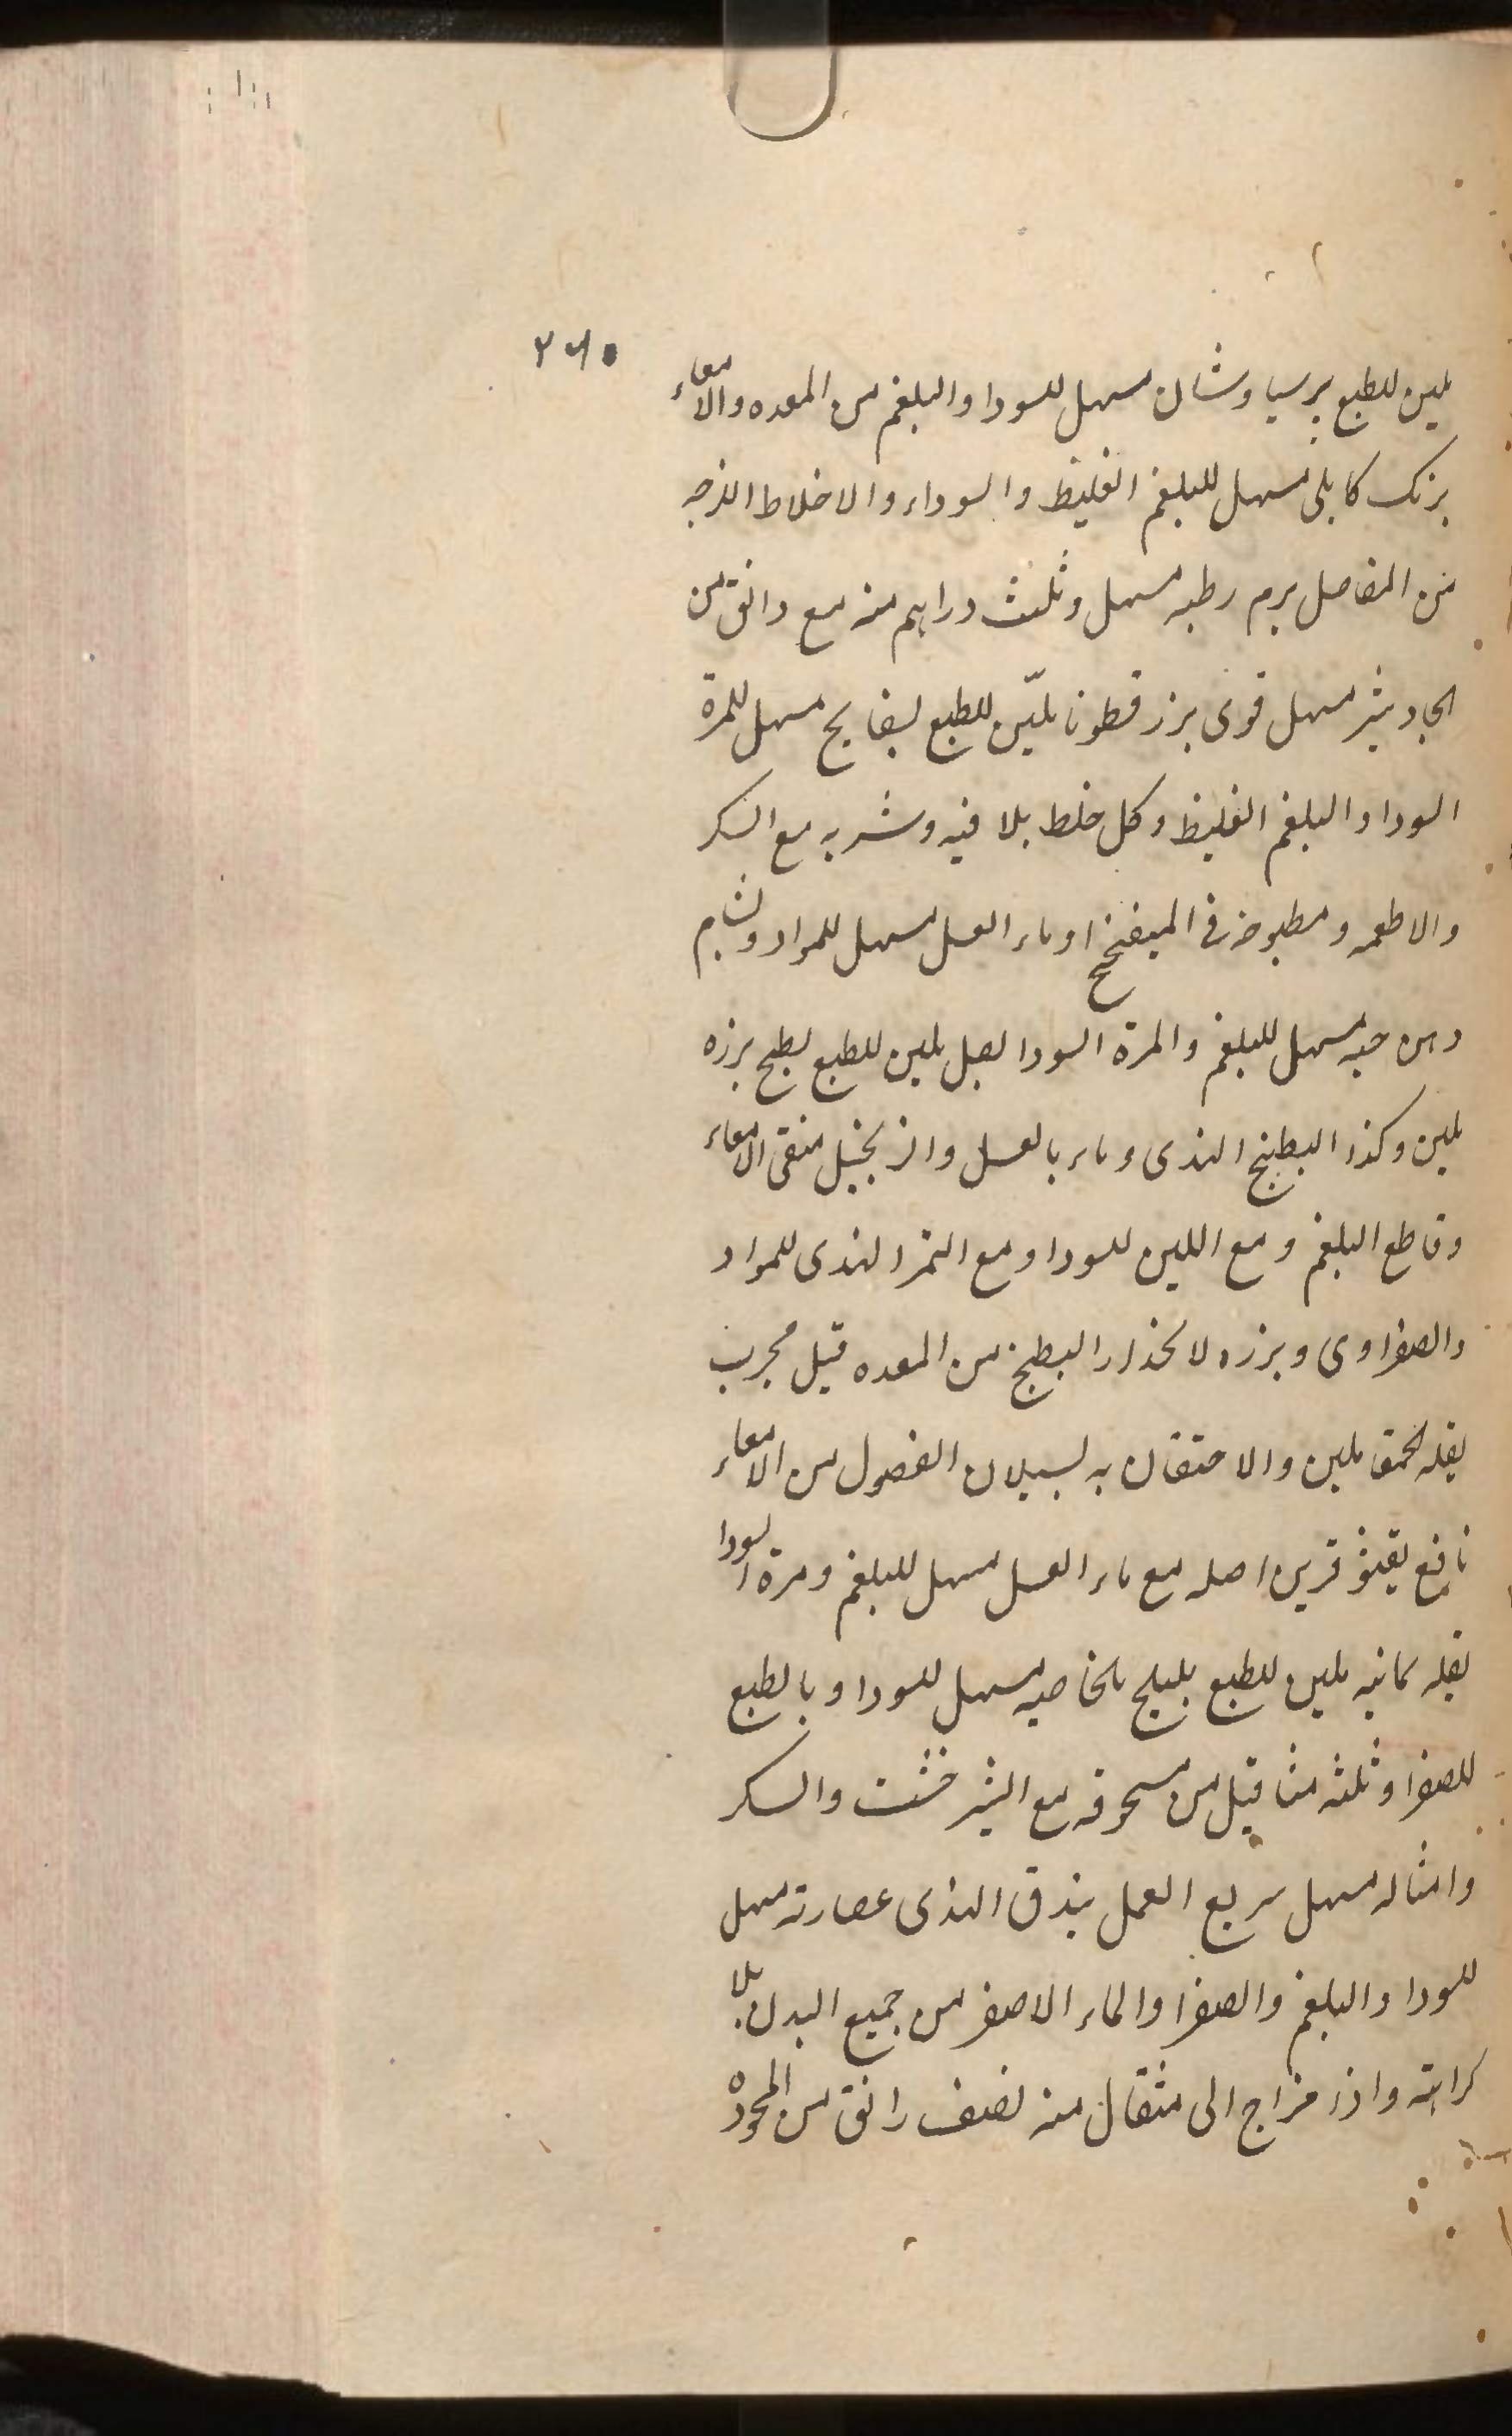 ٢٦٥
ملين للطبع برسياوشان مسهل للسودا والبلغم من المعده والامعاء
برنك كابلى مسهل للبلغم الغليظ والسوداء والاخلاط اللزجه
من المفاصل برم رطبه مسهل وثلث دراهم منه مع دانق من
الجاوشير مسهل قوى بزر قطونا ملیّن للطبع بسفايج مسهل للمرة
السودا والبلغم الغليظ وكل خلط يلاقيه وشربه مع السكر
والاطعمه ومطبوخه فى الميفختج او ماء العسل مسهل للمواد
دهن حبه مسهل للبلغم والمرة السودا بصل ملين للطبع بطيخ بزره
ملين وكذا البطيخ الهندى وماءه بالعسل والزنجبيل منقى الامعاء
وقاطع البلغم ومع اللبن للسودا ومع التمر الهندى للمواد
الصفراوى وبزره لانحدار البطيخ من المعده قيل مجرب
بقله الحمقا ملين والاحتقان به لسيلان الفضول من الامعاء
نافع اصله مع ماء العسل مسهل للبلغم ومرة السودا
بقله يمانيه ملين للطبع بليلج بالخاصيه مسهل للسودا وبالطبع
للصفرا وثلثه مثاقيل من مسحوقه مع الشيرخشت والسكر
وامثاله مسهل سريع العمل بندق الهندى عصارته مسهل
للسودا والبلغم والصفرا والماء الاصفر من جميع البدن بلا
كراهته واذا مزاج الى مثقال منه نصف دانق من المحموده